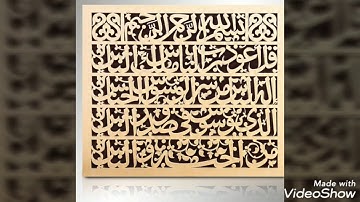 بسم الله الرحمن الرحيم
قل اعوذ برب الناس ملك الناس
اله الناس من شر الوسواس الخناس
الذي يوسوس في صدور الناس
من الجنة و الناس
Made with
VideoShow